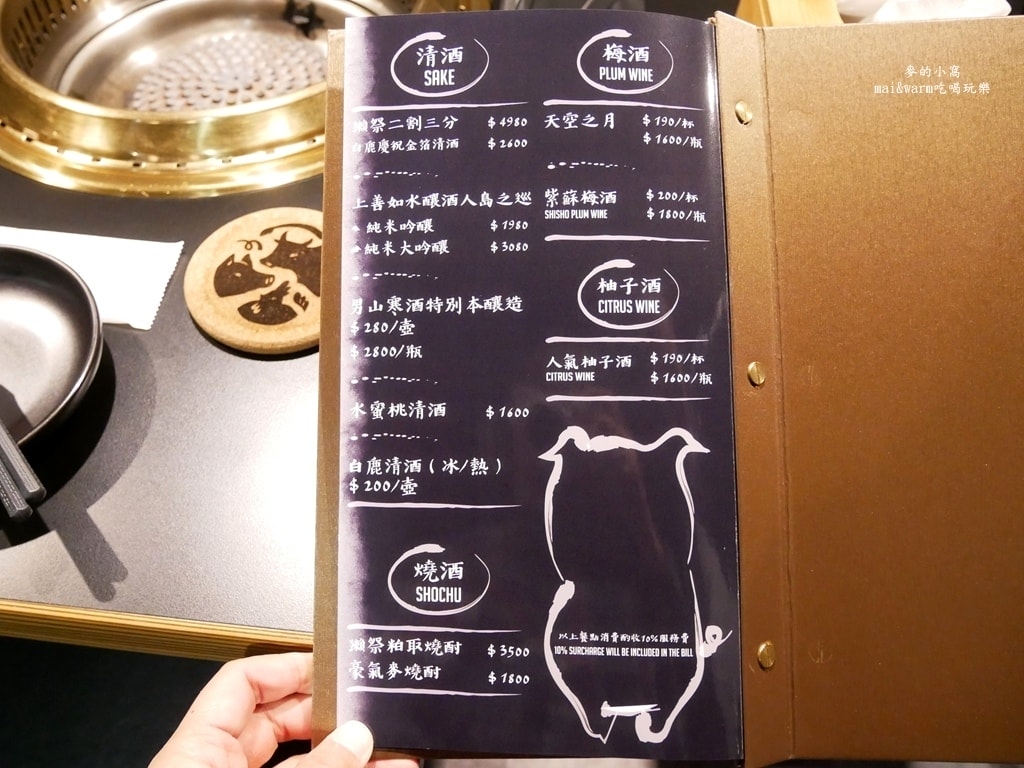 清酒
SAKE
獺祭二割三分 $4980
白鹿慶祝金箔清酒 $2600
上善如水釀酒人島之巡
純米吟釀 $1980
純米大吟釀 $3080
男山寒酒特別本釀造
$280/壺
$2800/瓶
水蜜桃清酒 $1600
白鹿清酒(冰/熱)
$200/壺
燒酒
SHOCHU
獺祭粕取燒酎 $3500
豪氣麥燒酎 $1800
梅酒
PLUM WINE
天空之月 $190/杯
$1600/瓶
紫蘇梅酒 $200/杯
SHISHO PLUM WINE $1800/瓶
柚子酒
CITRUS WINE
人氣柚子酒 $190/杯
CITRUS WINE $1600/瓶
以上餐點消費酌收10%服務費
10% SURCHARGE WILL BE INCLUDED IN THE BILL
麥的小窩
mai&warm吃喝玩樂